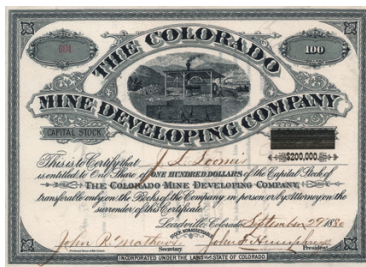 THE COLORADO
100
MINE DEVELOPING COMPANY
CAPITAL STOCK
$200,000.
This is to Certify that J. S. Loomis
is entitled to One Share of ONE HUNDRED DOLLARS of the Capital Stock of
THE COLORADO MINE DEVELOPING COMPANY,
transferable only on the Books of the Company in person or by Attorney on the
surrender of this Certificate.
Leadville Colorado September 29 1880
John R.
John
Secretary
President
INCORPORATED UNDER THE LAWS OF THE STATE OF COLORADO.